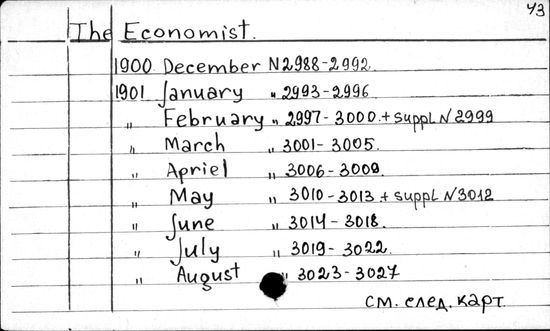 43
The Economist.
1900 December N 2988-2992.
1901 January " 2993-2996
" February " 2997-3000. + suppl. N 2999
" March " 3001-3005.
" Apriel " 3006-3009.
" May " 3010-3013 + suppl N 3012
" June " 3014-3018.
" July " 3019-3022.
" August " 3023-3027
см. след. карт.